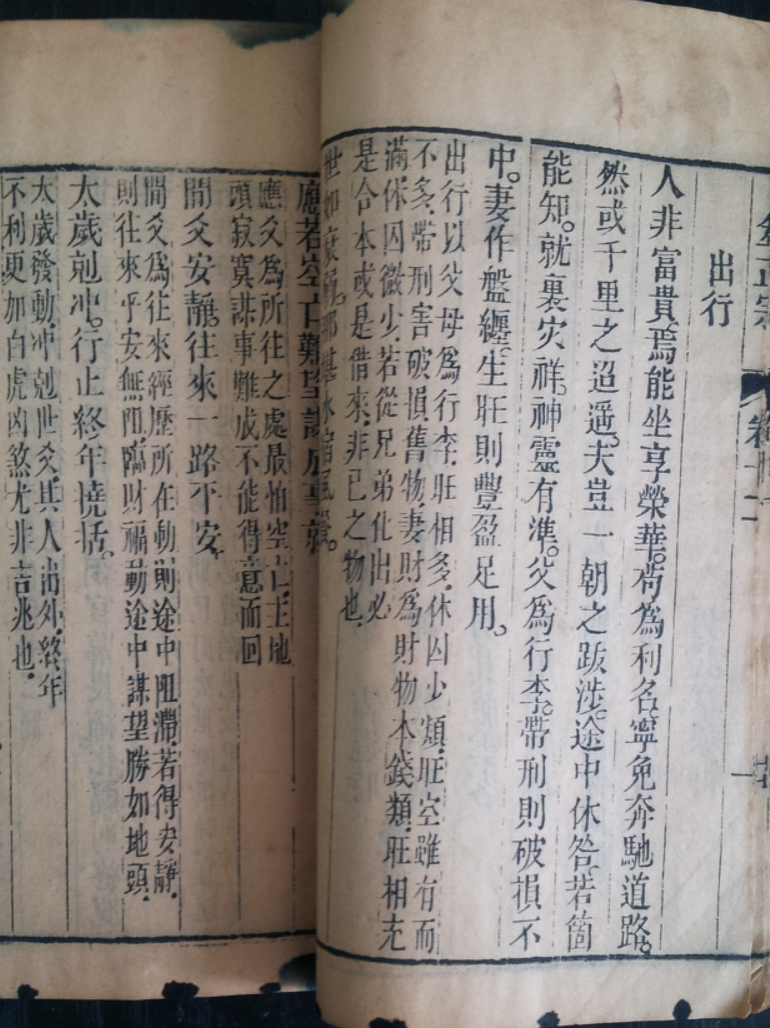 出行
人非富貴。焉能坐享榮華。苟爲利名。寧免奔馳道路。
然或千里之迢遥。夫豈一朝之跋涉。途中休咎。若箇
能知。就裏灾祥。神靈有準。父爲行李。帶刑則破損不
中。妻作盤纏。生旺則豐盈足用。
出行以父母爲行李。旺相多。休囚少類。旺空雖有而
不多。帶刑害破損舊物。妻財爲財物本錢類。旺相充
滿。休囚微少。若從兄弟化出必
是合本或是借來。非已之物也。
世如衰弱。
應若空亡難望謀成事就
應爻爲所往之處最怕空亡。主地
頭寂寞謀事難成不能得意而回
間爻安靜。往來一路平安。
間爻爲往來經歷所在動則途中阻滯。若得安靜。
則往來平安無阻。臨財福動途中謀望勝如地頭。
太歲剋冲。行止終年撓括。
太歲發動。冲剋世爻。其人出外。終年
不利更加白虎凶煞尤非吉兆也。